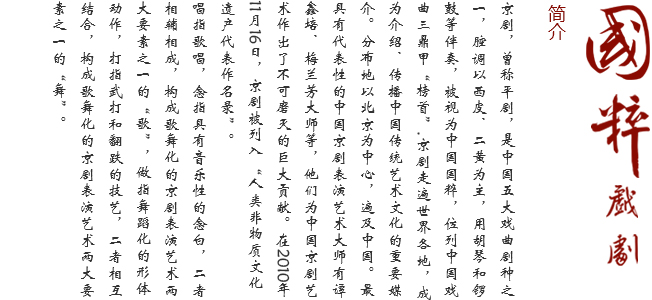 國粹戲劇
简介
京剧，曾称平剧，是中国五大戏曲剧种之
一，腔调以西皮、二黄为主，用胡琴和锣
鼓等伴奏，被视为中国国粹，位列中国戏
曲三鼎甲“榜首”.京剧走遍世界各地，成
为介绍、传播中国传统艺术文化的重要媒
介。分布地以北京为中心，遍及中国。最
具有代表性的中国京剧表演艺术大师有谭
鑫培、梅兰芳大师等，他们为中国京剧艺
术作出了不可磨灭的巨大贡献。在2010年
11月16日，京剧被列入“人类非物质文化
遗产代表作名录”。
唱指歌唱，念指具有音乐性的念白，二者
相辅相成，构成歌舞化的京剧表演艺术两
大要素之一的“歌”，做指舞蹈化的形体
动作，打指武打和翻跌的技艺，二者相互
结合，构成歌舞化的京剧表演艺术两大要
素之一的“舞”。